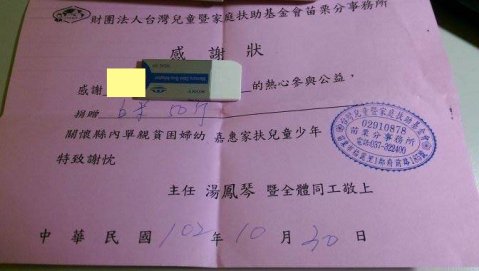 財團法人台灣兒童暨家庭扶助基金會苗栗分事務所
感謝狀
感謝 的熱心參與公益,
捐贈 白米 50斤
關懷縣內單親貧困婦幼 嘉惠家扶兒童少年
特致謝忱
主任 湯鳳琴 暨全體同工敬上
中華民國 102 年 10 月 30 日
02910878
苗栗分事務所
電話:037-322400
SONY